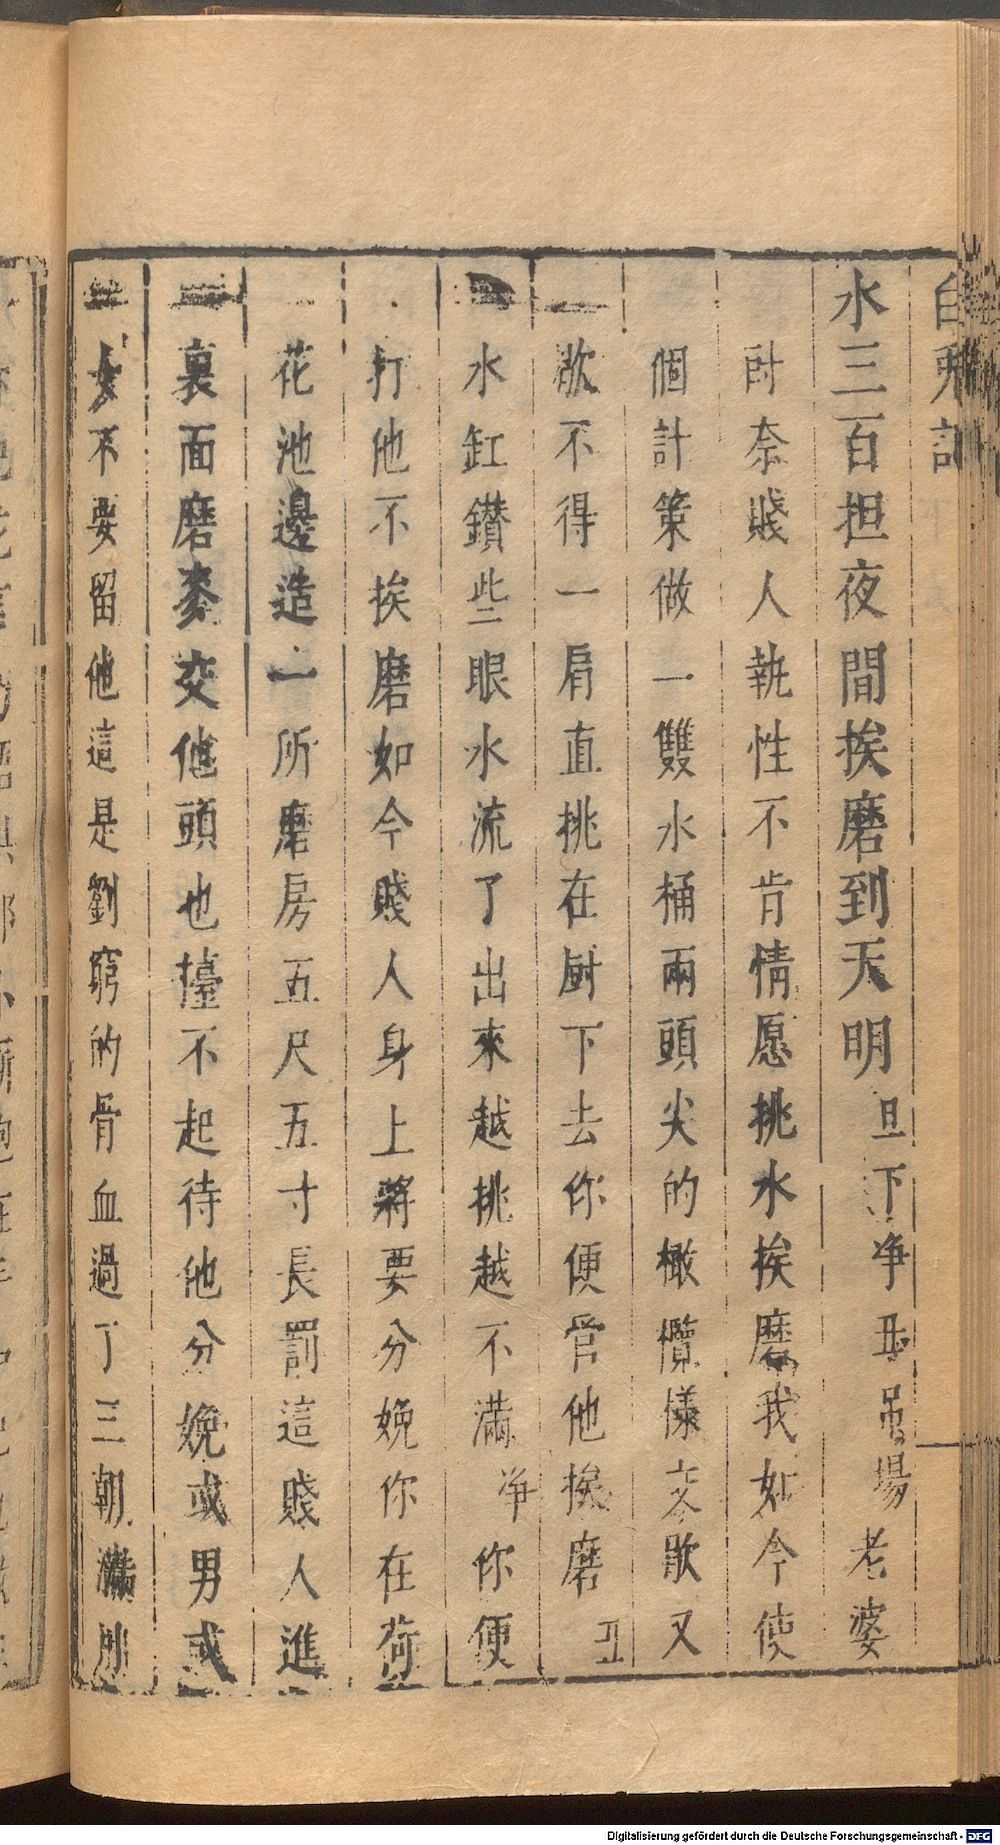 白兎記
水三百担夜間挨磨到天明 旦下净丑吊場老婆
尀奈賤人執性不肯情愿挑水挨磨我如今使
個計策做一雙水桶兩頭尖的橄欖樣交歇又
歇不得一肩直挑在厨下去你便官他挨磨 丑
水缸鑚些眼水流了出來越挑越不滿 净你便
打他不挨磨如今賤人身上將要分娩你在荷
花池邊造一所磨房五尺五寸長罰這賤人進
裏面磨麥交他頭也擡不起待他分娩或男或
女不要留他這是劉窮的骨血過了三朝滿
Digitalisierung gefördert durch die Deutsche Forschungsgemeinschaft - DFG